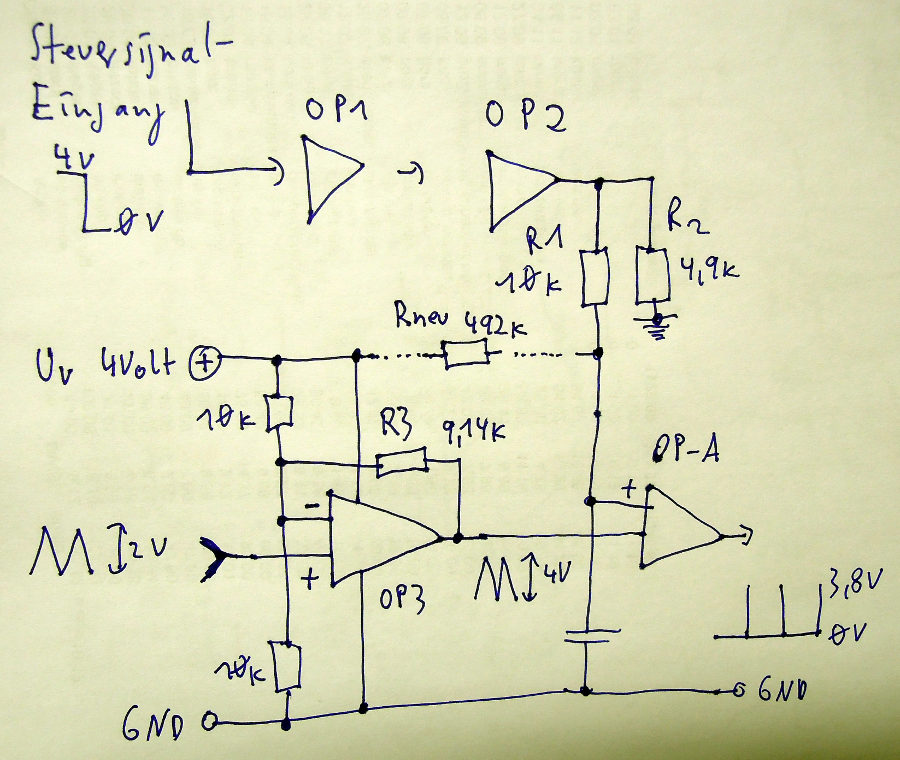 Steuersignal-
Eingang
4V
0V
OP1
OP2
R1
10k
R2
4,9k
Rneu 492k
Uv 4Volt +
10k
R3 9,14k
OP-A
+
-
2V
+
4V
OP3
3,8V
0V
10k
GND
GND